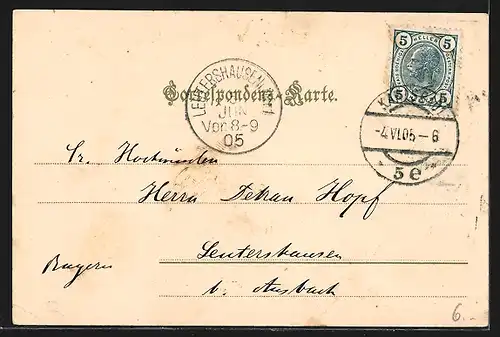 5 HELLER 5
5 5
Correspondenz-Karte.
LEUTERSHAUSEN
JUN
Vor. 8-9
05
-4.VI.05-6
5e
Sr. Hochwürden
Herrn Dekan Hopf
Leutershausen
Bayern
b. Ansbach
6.